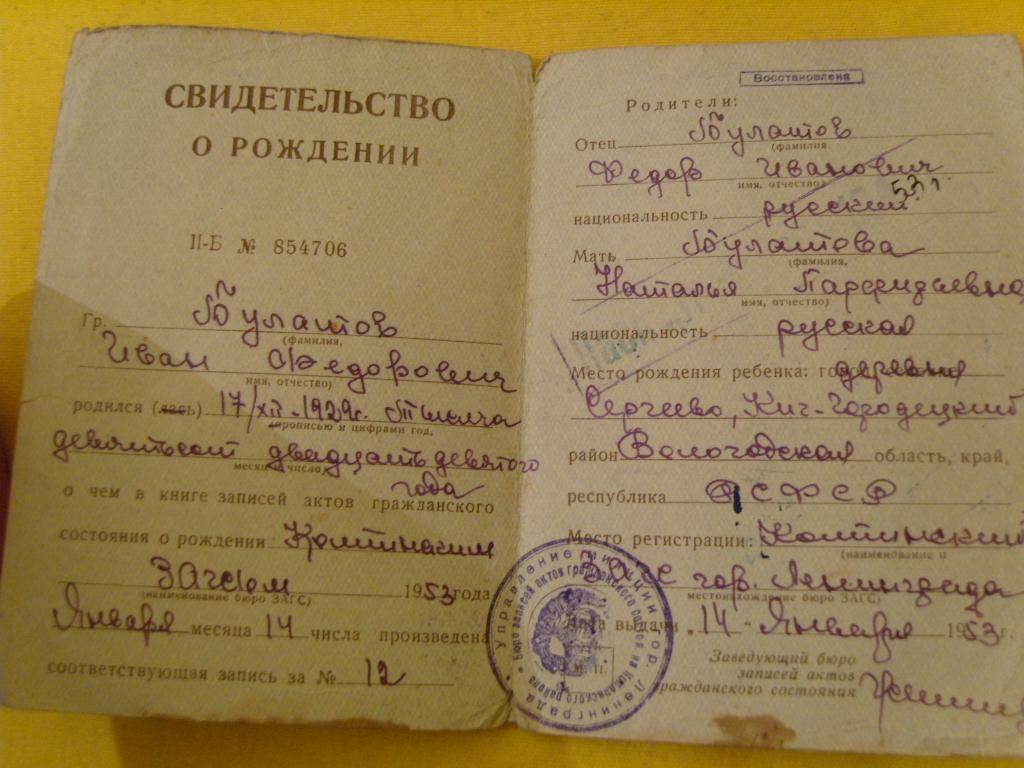 СВИДЕТЕЛЬСТВО
О РОЖДЕНИИ
II-Б № 854706
Гр. Булатов
(фамилия,
Иван Федорович
имя, отчество)
родился (лась) 17/XII-1929г. Тысяча
прописью и цифрами год,
девятьсот двадцать девятого
месяц и число)
года
о чем в книге записей актов гражданского
состояния о рождении
ЗАГСом 1953 года
(наименование бюро ЗАГС)
Января месяца 14 числа произведена
соответствующая запись за № 12
Восстановлена
Родители:
Отец Булатов
(фамилия,
Федор Иванович
имя, отчество)
53 г.
национальность русский
Мать Булатова
(фамилия,
Наталья
имя, отчество)
национальность русская
Место рождения ребенка: деревня
Сергеево, Кич-Городецкий
район Вологодская область, край,
республика РСФСР
Место регистрации:
(наименование и
ЗАГС гор. Ленинграда
местонахождение бюро ЗАГС)
Дата выдачи „14" Января 1953 г.
Заведующий бюро
записей актов
гражданского состояния
Управление милиции гор. Ленинграда
Бюро записей актов гражданского состояния
района
М. П.